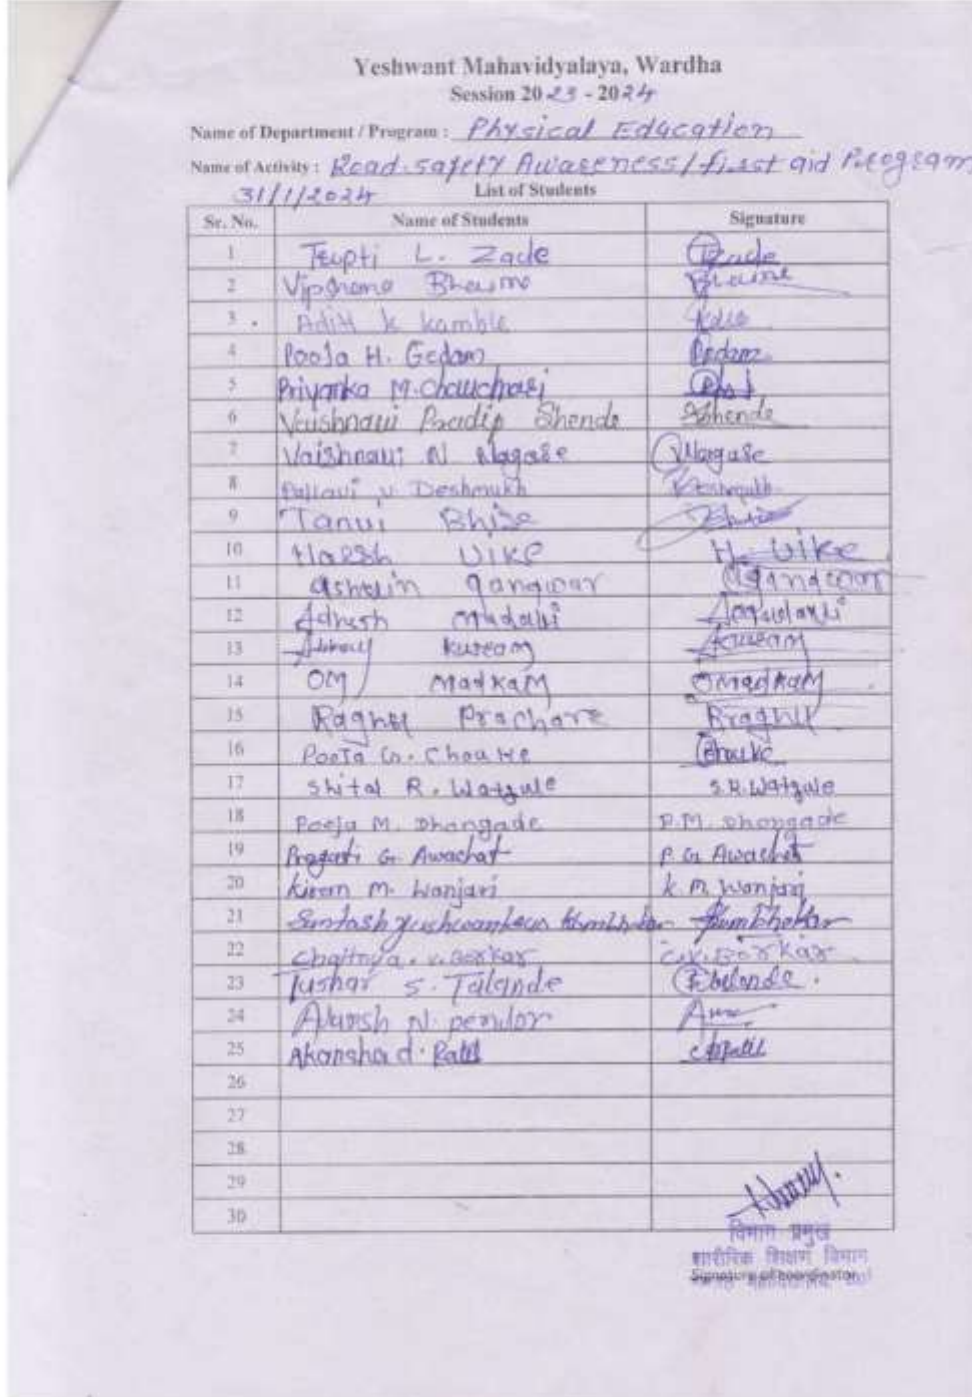 Yeshwant Mahavidyalaya, Wardha
Session 2023 - 2024
Name of Department / Program : Physical Education
Name of Activity : Road safety Awareness/first aid Program
31/1/2024 List of Students
Sr. No. Name of Students Signature
1 Trupti L. Zade Zade
2 Bhaisare
3 Aditi k kamble
4 Pooja H. Gedam Gedam
5 Priyanka M. Chaudhari
6 Vaishnavi Pradip Shende Shende
7 Vaishnavi N Nagase Nagase
8 Pallavi v. Deshmukh Deshmukh
9 Tanvi Bhise
10 Harsh UIKE H. Uike
11 Ashwin gangwar
12 Adnesh Madavi
13 Abhay kureem
14 OM MadKaM OMadkaM
15 Raghu Prachare Rraghu
16 Pooja G. Chouke Chouke
17 Shital R. Watgule S.R. Watgule
18 Pooja M. Dhongade P.M. Dhongade
19 Pragati G. Awachat P. G. Awachat
20 Kiran M. Wanjari K. M. Wanjari
21 Santosh Kumbhekar
22 Chaitnya. v. Borkar C.V. Borkar
23 Tushar S. Talande
24 N. pendor
25 Akansha d. Patil
26
27
28
29
30
विभाग प्रमुख
शारीरिक शिक्षण विभाग
Signature of coordinator